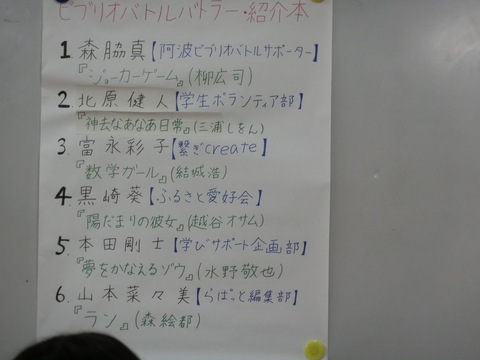 ビブリオバトルバトラー・紹介本
1 森脇真【阿波ビブリオバトルサポーター】
『ジョーカーゲーム』(柳広司)
2. 北原健人【学生ボランティア部】
『神去なあなあ日常』(三浦しをん)
3. 富永彩子【繋ぎcreate】
『数学ガール』(結城浩)
4. 黒崎葵【ふるさと愛好会】
『陽だまりの彼女』(越谷オサム)
5. 本田剛士【学びサポート企画部】
『夢をかなえるゾウ』(水野敬也)
6. 山本菜々美【らぱっと編集部】
『ラン』(森絵都)